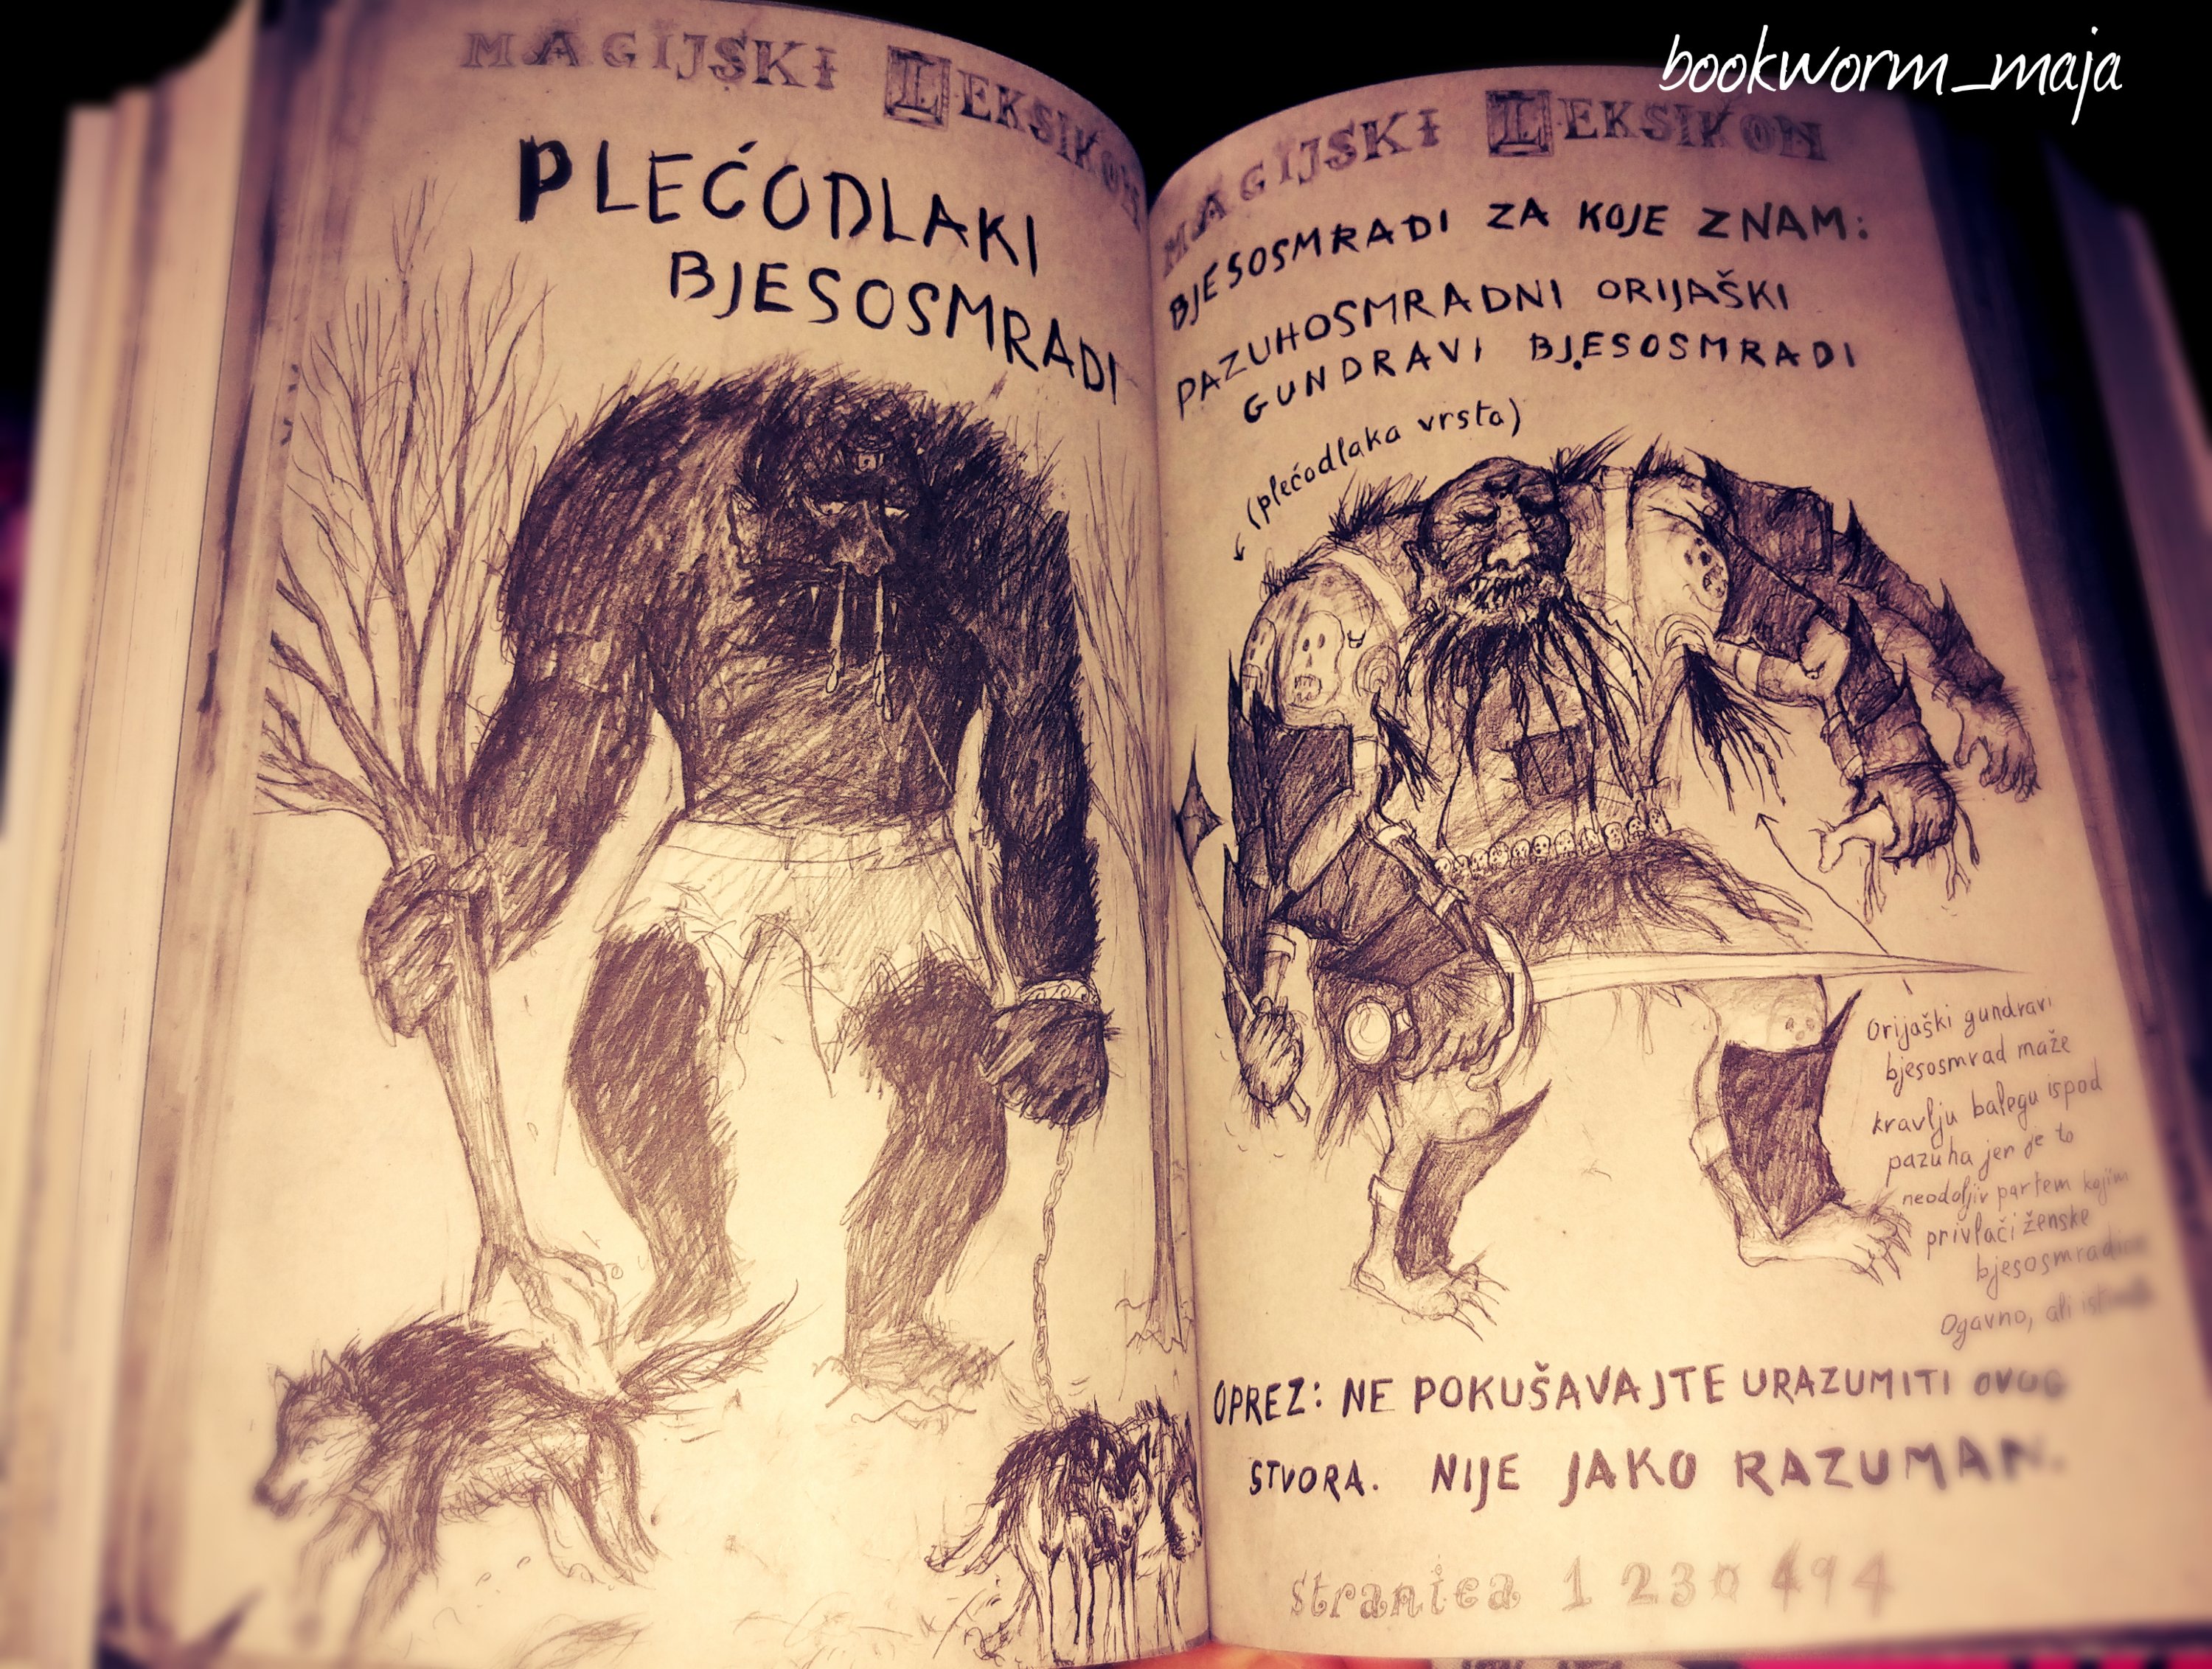 MAGIJSKI LEKSIKON
PLEĆODLAKI
BJESOSMRADI
bookworm_maja
MAGIJSKI LEKSIKON
BJESOSMRADI ZA KOJE ZNAM:
PAZUHOSMRADNI ORIJAŠKI
GUNDRAVI BJESOSMRADI
(plećodlaka vrsta)
Orijaški gundravi
bjesosmrad maže
kravlju balegu ispod
pazuha jer je to
neodoljiv parfem kojim
privlači ženske
Ogavno, ali
OPREZ: NE POKUŠAVAJTE URAZUMITI OVOG
STVORA. NIJE JAKO RAZUMAN.
stranica 1 230 494